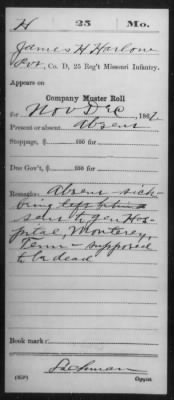 H 25 Mo.
James H Harlow
Pvt, Co. D, 25 Reg't Missouri Infantry.
Appears on
Company Muster Roll
for Nov Dec, 1862
Present or absent Absent
Stoppage, $ 100 for
Due Gov't, $ 100 for
Remarks: Absent - sick-
being left behind
sent to gen Hos-
pital, Monterey,
Tenn - supposed
to be dead
Book mark:
(858)
Copyist.